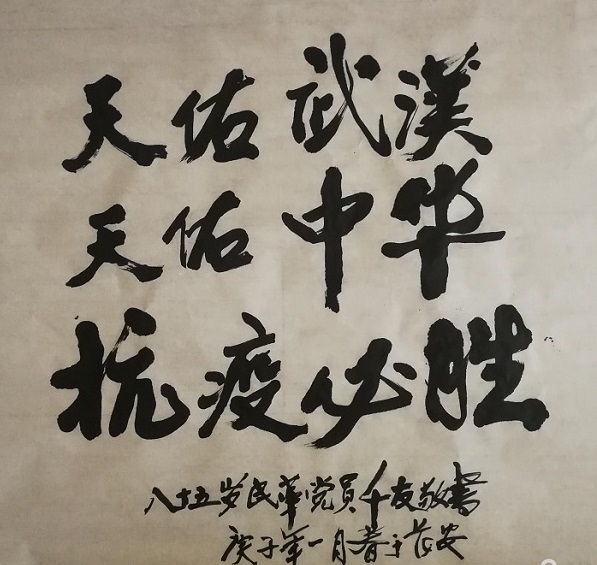 天佑武漢
天佑中华
抗疫必胜
八十五岁民革党员千友敬書
庚子年一月春于长安